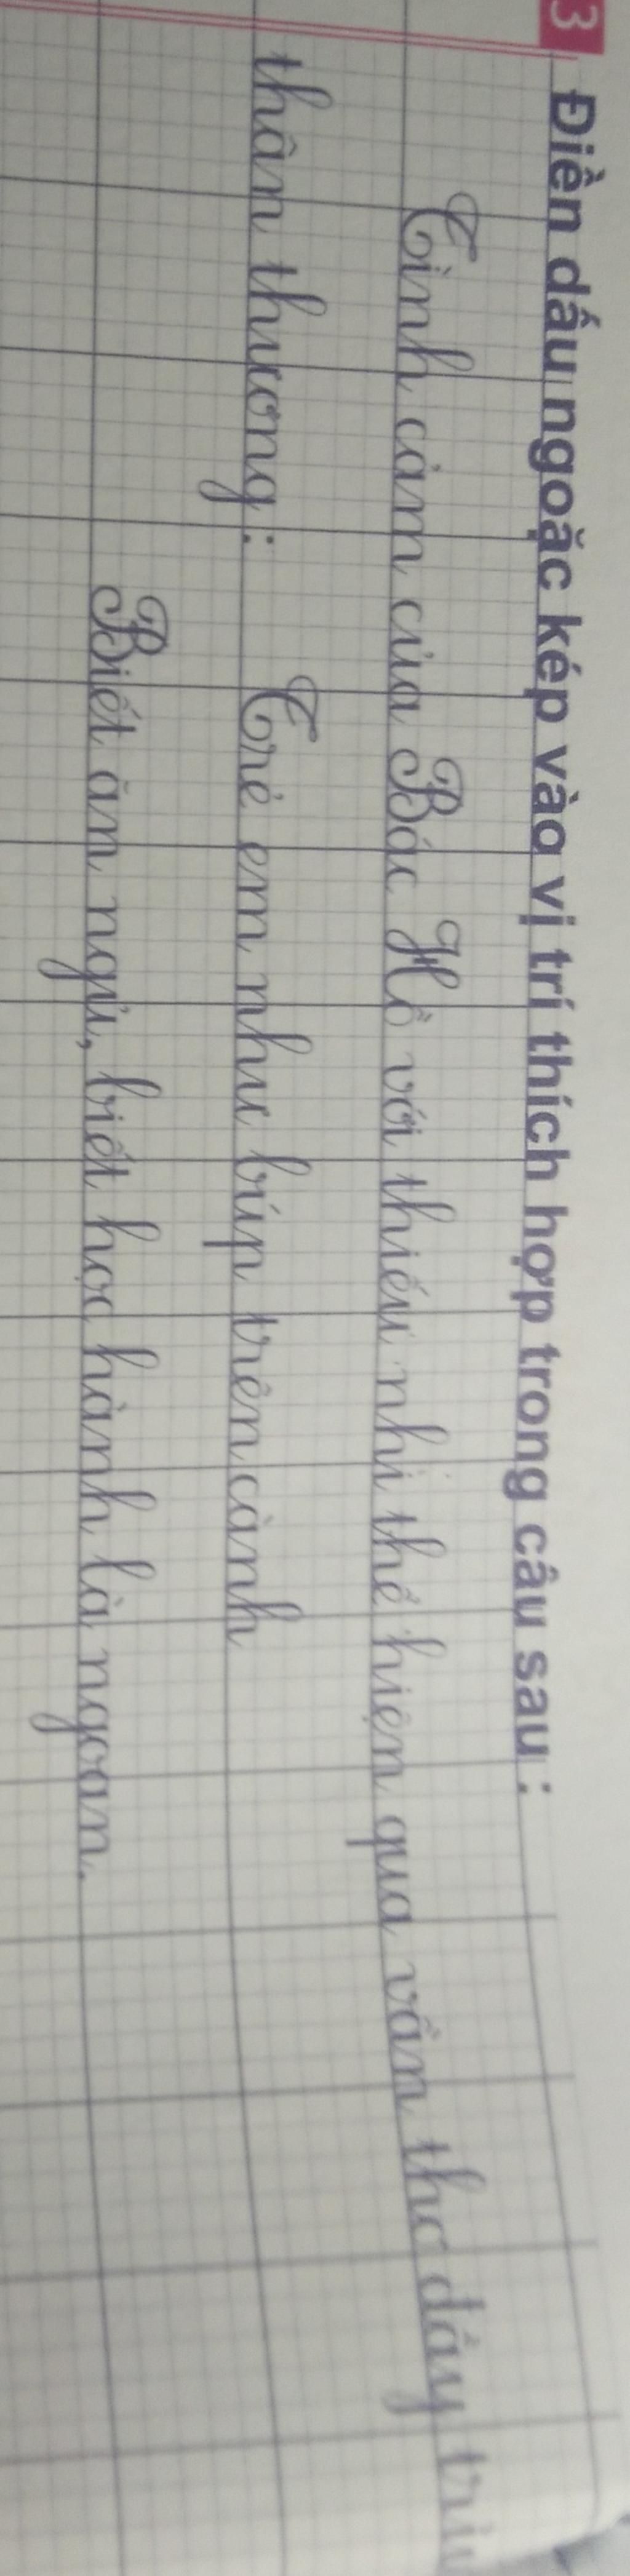 3 Điền dấu ngoặc kép vào vị trí thích hợp trong câu sau :
Tình cảm của Bác Hồ với thiếu nhi thể hiện qua vần thơ đầy
thân thương : Trẻ em như búp trên cành
Biết ăn ngủ, biết học hành là ngoan.